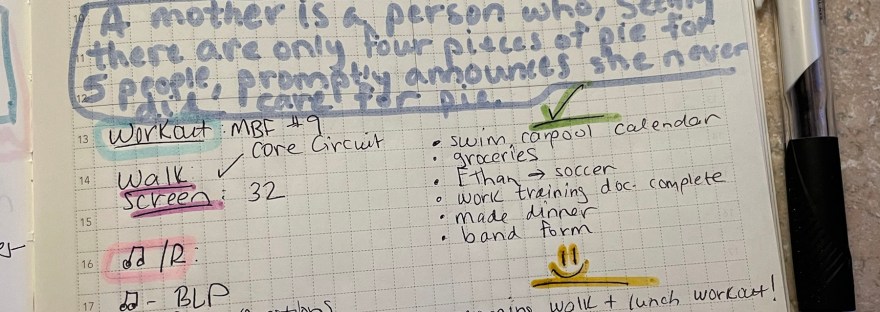 A mother is a person who, seeing
there are only four pieces of pie for
5 people, promptly announces she never
did care for pie.
13 Workout: MBF #9
Core Circuit
14 Walk: ✓
Screen: 32
15
16 ♫/R:
17 ♫- BLP
✓
• swim carpool calendar
• groceries
• Ethan → soccer
• work training doc. complete
• made dinner
• band form
walk + lunch workout!